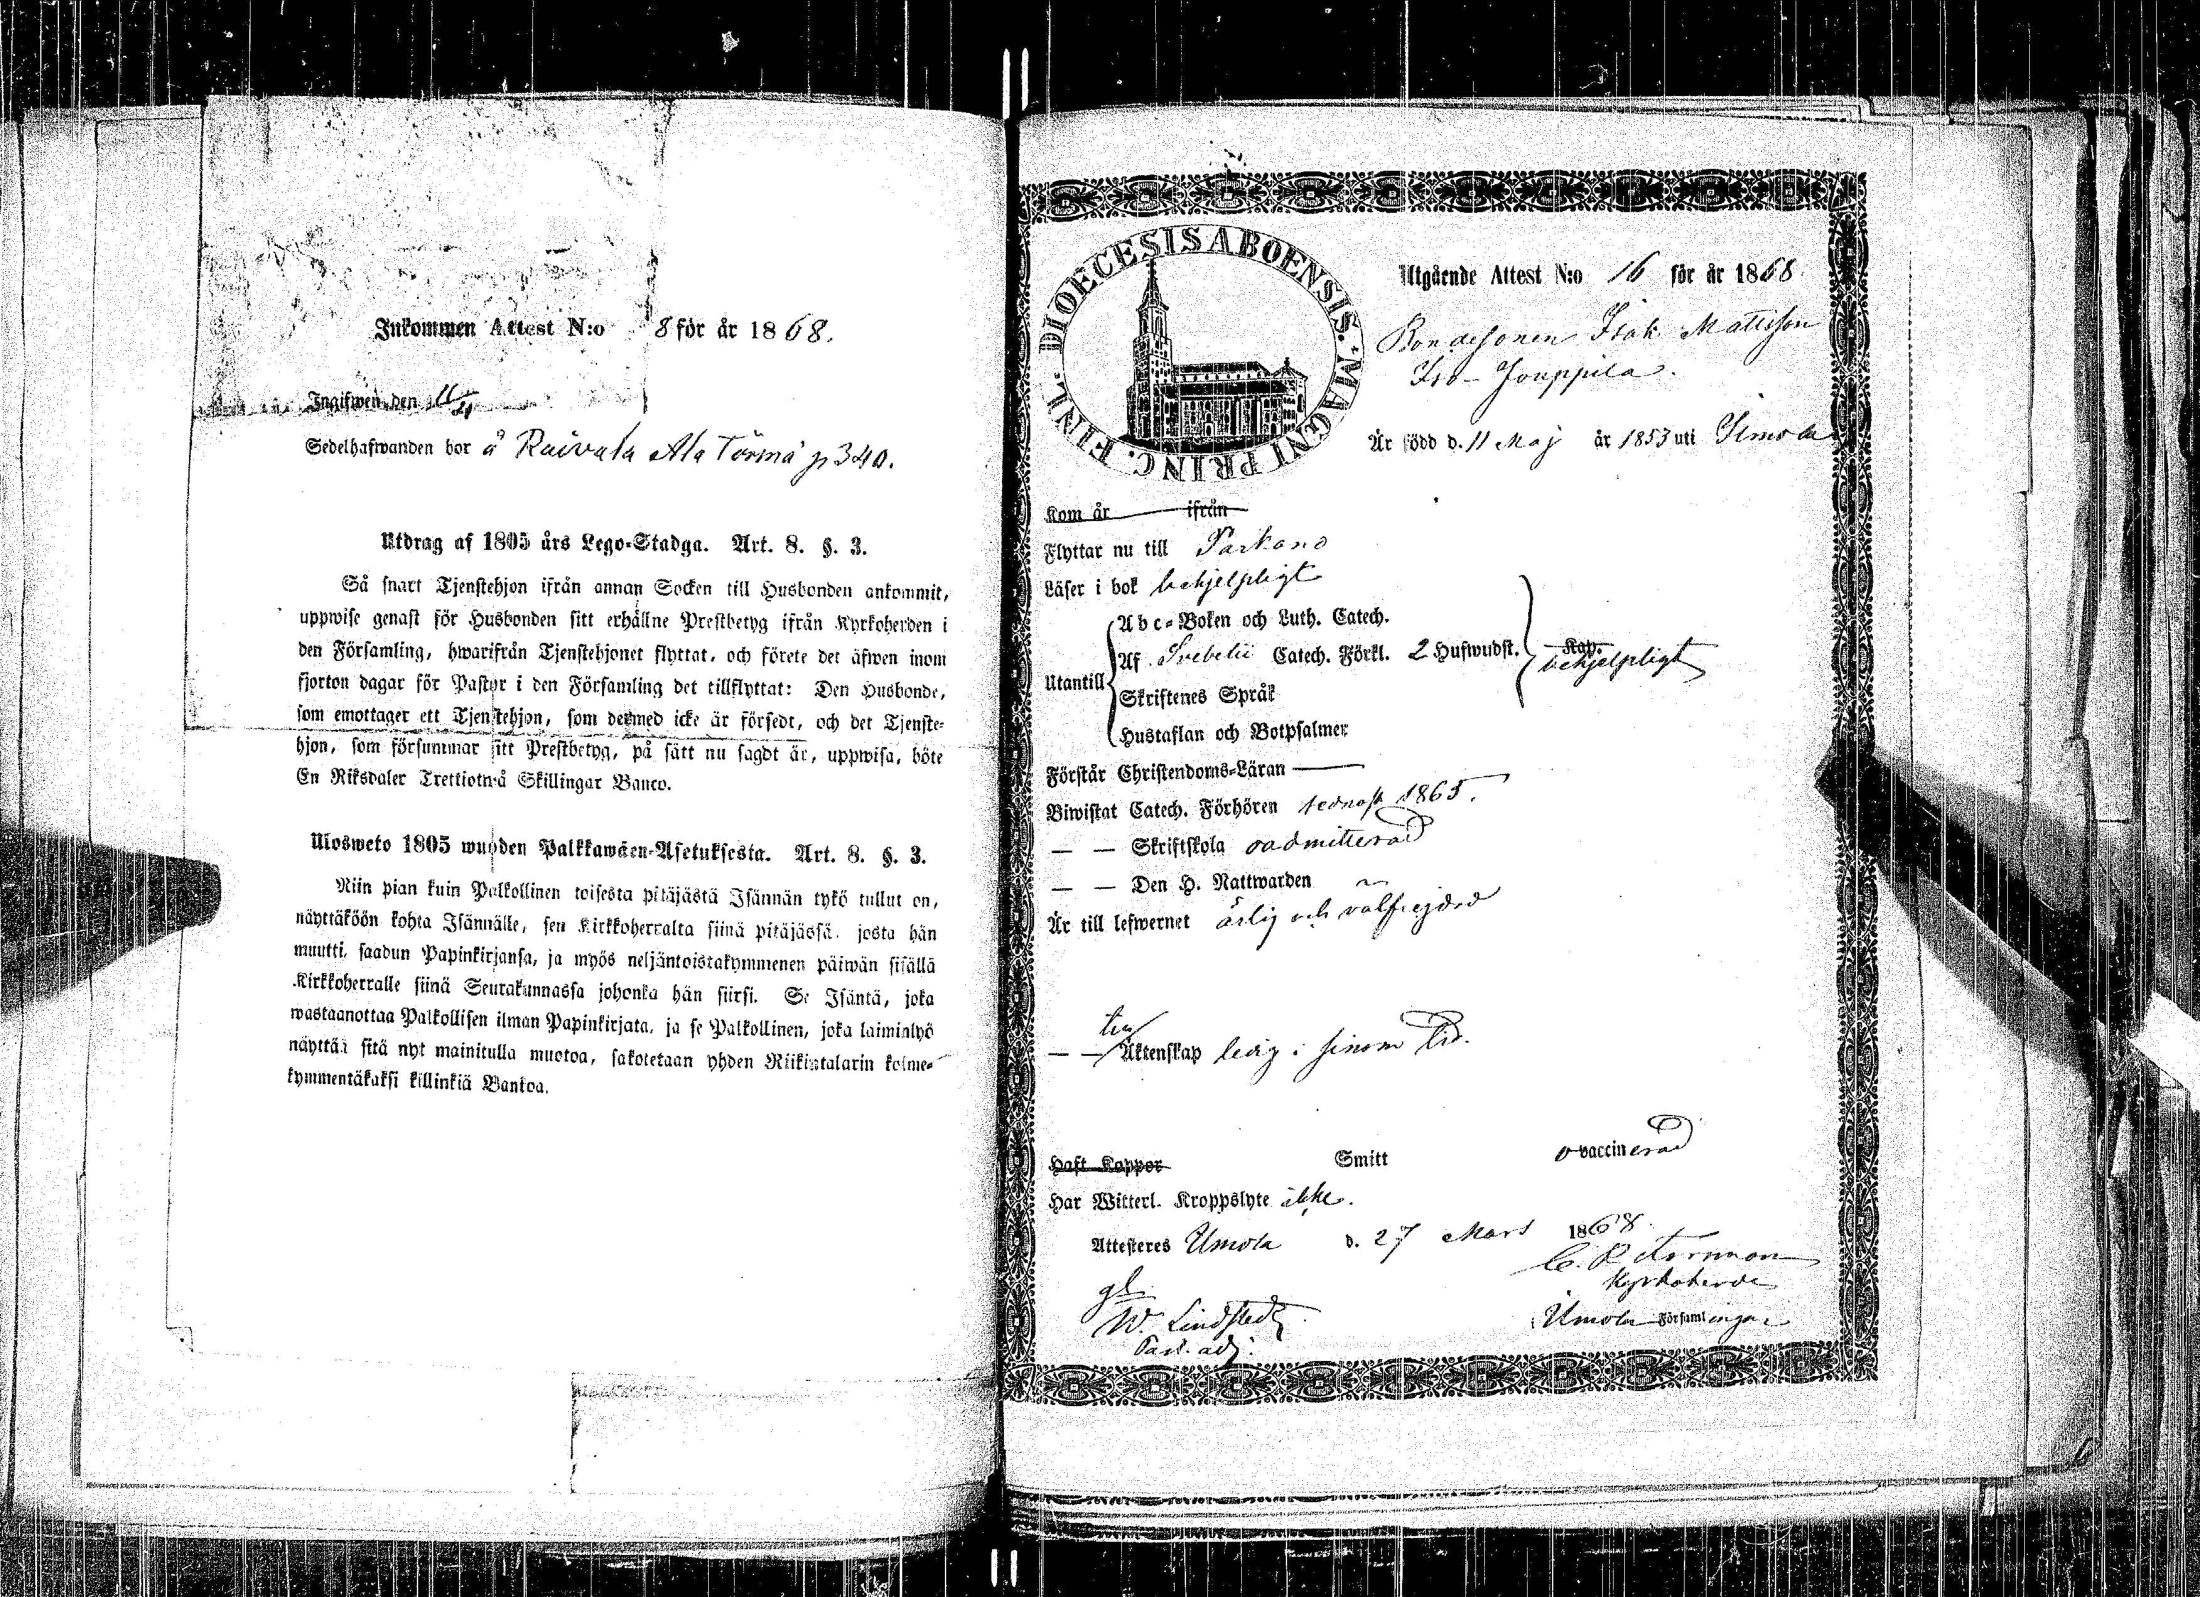 Inkommen Attest N:o 8 för år 1868.
Ingifwen den 11/4
Sedelhafwanden bor å Raivala Ala Törmä p 340.
Utdrag af 1805 års Lego-Stadga. Art. 8. §. 3.
Så snart Tjenstehjon ifrån annan Socken till Husbonden ankommit,
uppwise genast för Husbonden sitt erhållne Prestbetyg ifrån Kyrkoherden i
den Församling, hwarifrån Tjenstehjonet flyttat, och förete det äfwen inom
fjorton dagar för Pastor i den Församling det tillflyttat: Den Husbonde,
som emottager ett Tjenstehjon, som dermed icke är försedt, och det Tjenste-
hjon, som försummar sitt Prestbetyg, på sätt nu sagdt är, uppwisa, böte
En Riksdaler Trettiotwå Skillingar Banco.
Ulosweto 1805 wuoden Palkkawäen-Asetuksesta. Art. 8. §. 3.
Niin pian kuin Palkollinen toisesta pitäjästä Isännän tykö tullut on,
näyttäköön kohta Isännälle, sen Kirkkoherralta siinä pitäjässä, josta hän
muutti, saadun Papinkirjansa, ja myös neljäntoistakymmenen päiwän sisällä
Kirkkoherralle siinä Seurakunnassa johonka hän siirsi. Se Isäntä, joka
wastaanottaa Palkollisen ilman Papinkirjata, ja se Palkollinen, joka laiminlyö
näyttää sitä nyt mainitulla muotoa, sakotetaan yhden Riikintalarin kolme-
kymmentäkaksi killinkiä Bankoa.
DIOECESIS ABOENSIS. MAGNI PRINC. FINL.
Utgående Attest N:o 16 för år 1868
Bondesonen Isak Mattsson
Iso-Jouppila.
Är född d. 11 Maj år 1853 uti Ilmola
Kom år ifrån
Flyttar nu till Parkano
Läser i bok behjelpligt
Abc-Boken och Luth. Catech.
Utantill Af Svebelii Catech. Förkl. 2 Hufwudst. Kap. behjelpligt
Skriftenes Språk
Hustaflan och Botpsalmer
Förstår Christendoms-Läran
Biwistat Catech. Förhören sednast 1865.
— — Skriftskola oadmitterad
— — Den H. Nattwarden
Är till lefwernet ärlig och välfrejdad
till
— — Äktenskap ledig i sinom tid.
Haft Koppor Smitt ovaccinerad
Har Witterl. Kroppslyte ikke.
Attesteres Ilmola d. 27 Mars 1868
Kyrkoherde
W. Lindstedt Ilmola Församlingar
Past. adj.